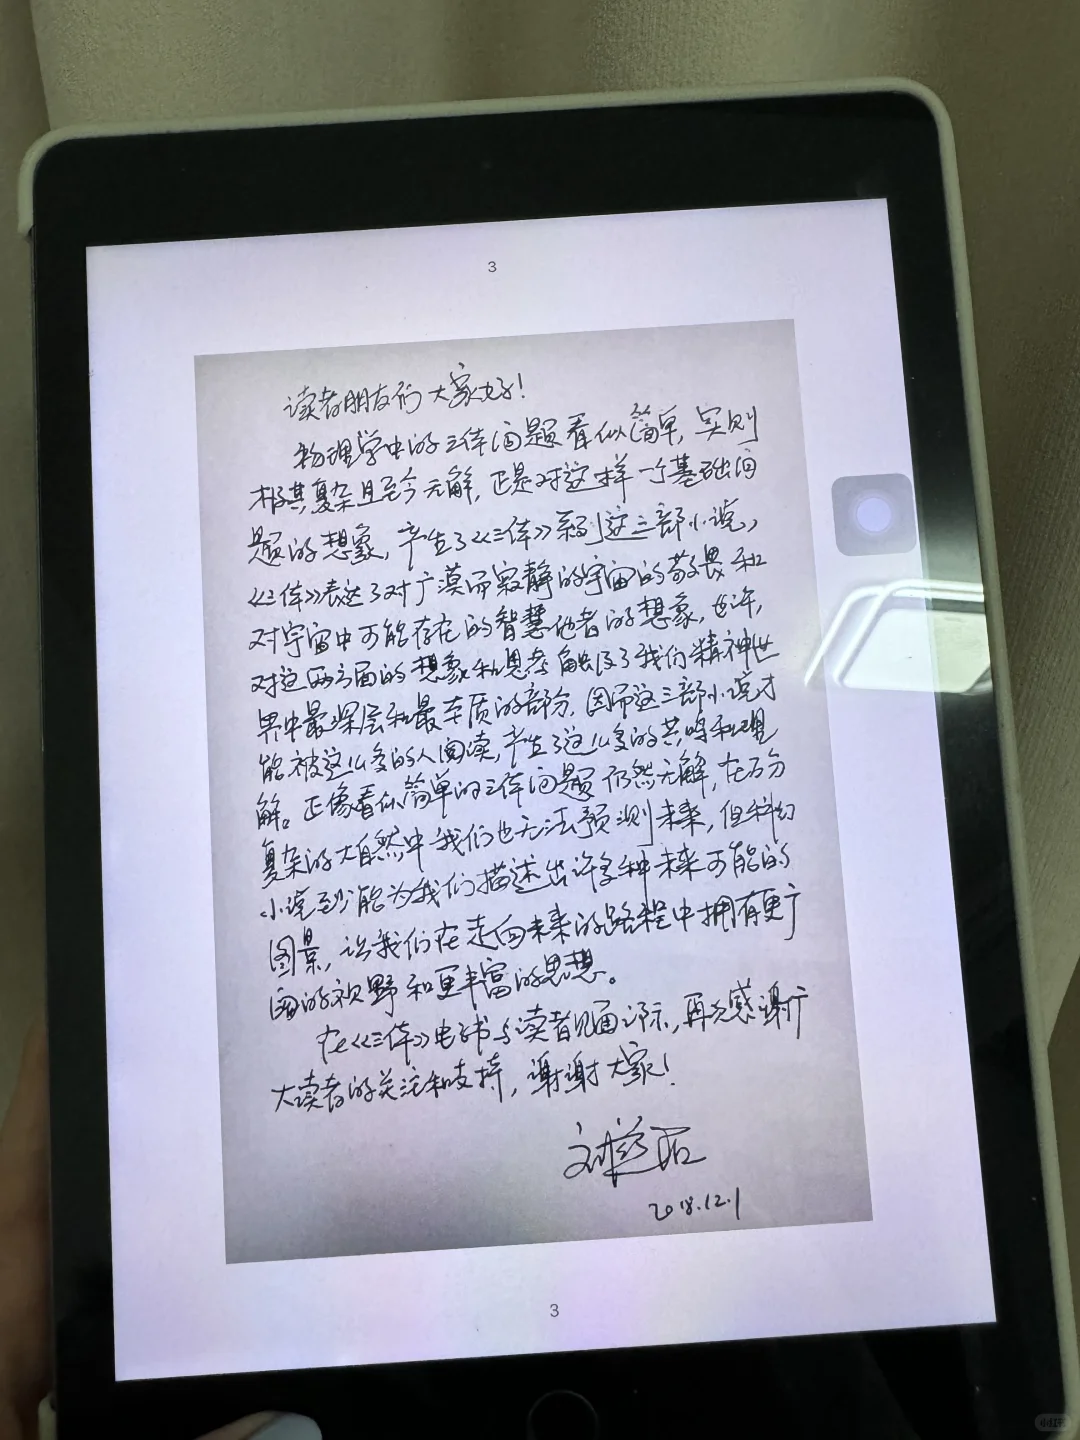 3
读者朋友们大家好!
物理学中的三体问题看似简单,实则
极其复杂且至今无解,正是对这样一个基础问
题的想象,产生了《三体》系列这三部小说,
《三体》表达了对广漠而寂静的宇宙的敬畏和
对宇宙中可能存在的智慧他者的想象,也许,
对这两方面的想象和思考触及了我们精神世
界中最深层和最本质的部分,因而这三部小说才
能被这么多的人阅读,产生了这么多的共鸣和理
解。正像看似简单的三体问题仍然无解,在万分
复杂的大自然中我们也无法预测未来,但科幻
小说至少能为我们描述出许多种未来可能的
图景,让我们在走向未来的路程中拥有更广
阔的视野和更丰富的思想。
在《三体》电子书与读者见面之际,再次感谢广
大读者的关注和支持,谢谢大家!
刘慈欣
2018.12.1
3